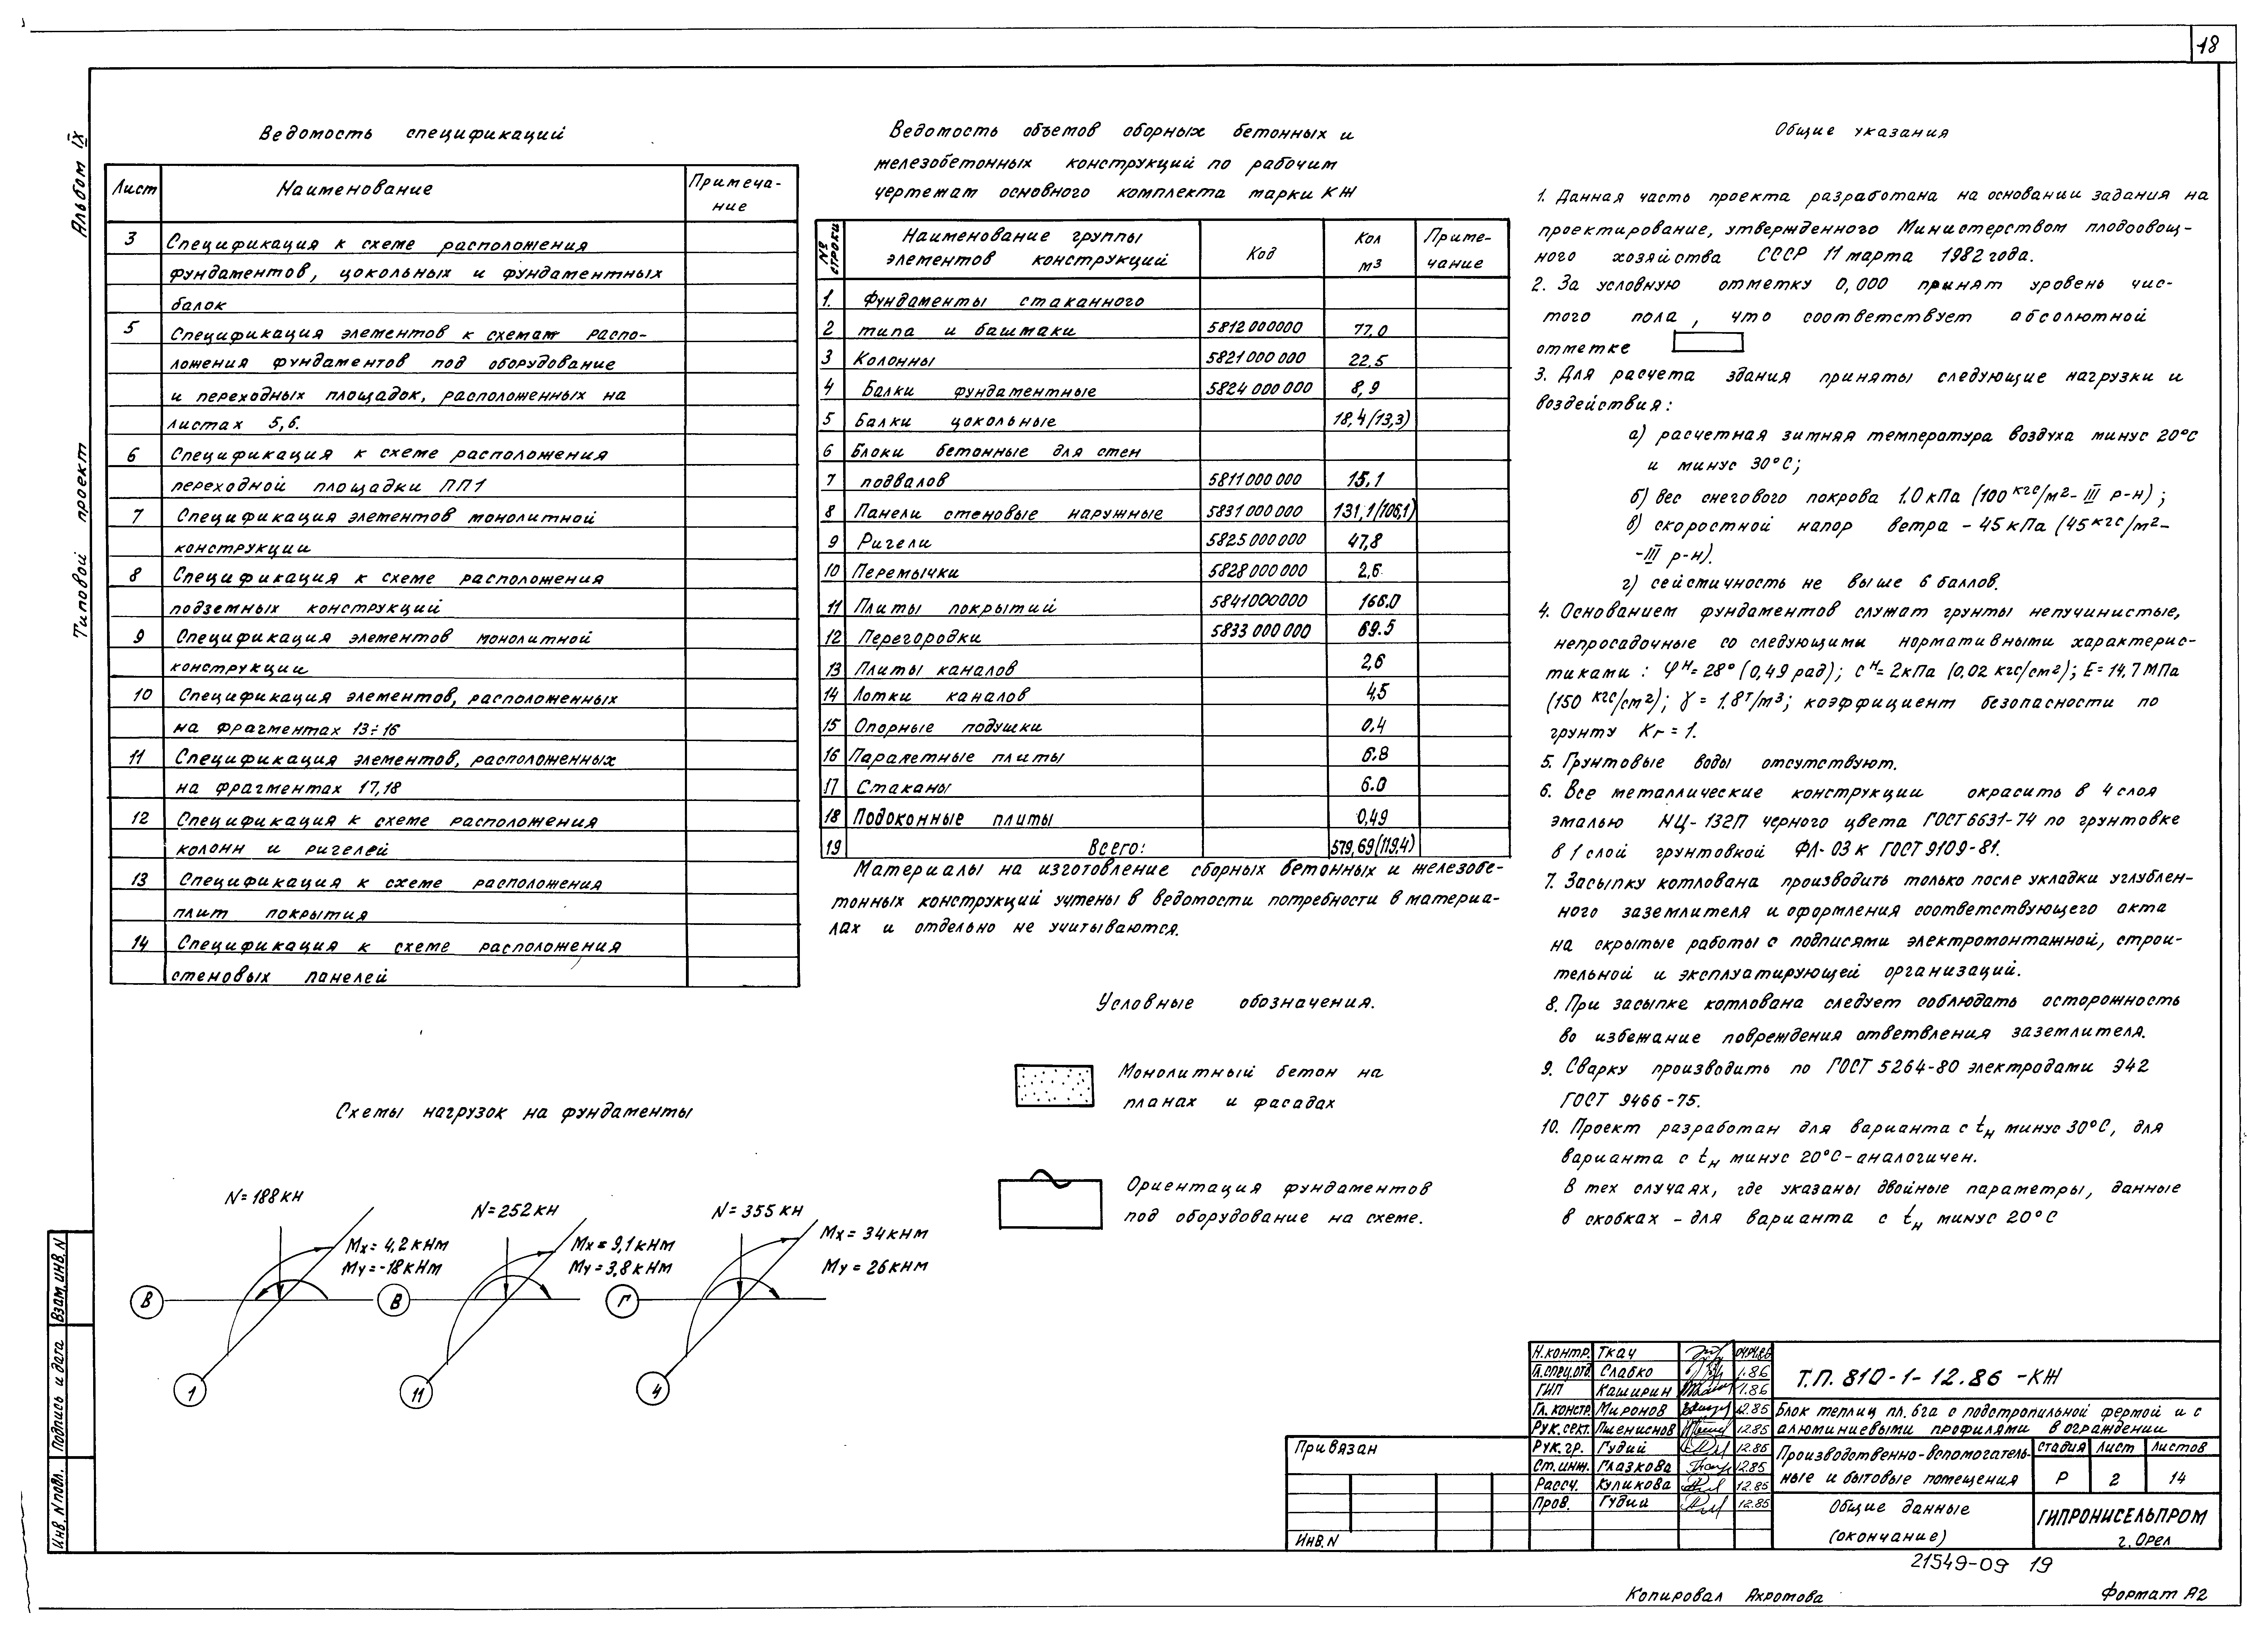 18
Альбом IX
Типовой проект
Ведомость спецификаций
Лист Наименование Примеча-
ние
3 Спецификация к схеме расположения
фундаментов, цокольных и фундаментных
балок
5 Спецификация элементов к схемам распо-
ложения фундаментов под оборудование
и переходных площадок, расположенных на
листах 5,6.
6 Спецификация к схеме расположения
переходной площадки ПП1
7 Спецификация элементов монолитной
конструкции
8 Спецификация к схеме расположения
подземных конструкций
9 Спецификация элементов монолитной
конструкции
10 Спецификация элементов, расположенных
на фрагментах 13÷16
11 Спецификация элементов, расположенных
на фрагментах 17,18
12 Спецификация к схеме расположения
колонн и ригелей
13 Спецификация к схеме расположения
плит покрытия
14 Спецификация к схеме расположения
стеновых панелей
Схемы нагрузок на фундаменты
N=188кн
Mx=4,2кНм
My=-18кНм
В
1
N=252кн
Mx=9,1кНм
My=3,8кНм
В
11
N=355кн
Mx=34кнм
My=26кнм
Г
4
Ведомость объемов сборных бетонных и
железобетонных конструкций по рабочим
чертежам основного комплекта марки КЖ
№ строки Наименование группы элементов конструкций Код Кол м3 Приме-
чание
1. Фундаменты стаканного
2 типа и башмаки 5812000000 77,0
3 Колонны 5821000000 22,5
4 Балки фундаментные 5824000000 8,9
5 Балки цокольные 18,4(13,3)
6 Блоки бетонные для стен
7 подвалов 5811000000 15,1
8 Панели стеновые наружные 5831000000 131,1(106,1)
9 Ригели 5825000000 47,8
10 Перемычки 5828000000 2,6
11 Плиты покрытий 5841000000 166.0
12 Перегородки 5833000000 69.5
13 Плиты каналов 2,6
14 Лотки каналов 4,5
15 Опорные подушки 0,4
16 Парапетные плиты 6.8
17 Стаканы 6.0
18 Подоконные плиты 0,49
19 Всего: 579,69(119.4)
Материалы на изготовление сборных бетонных и железобе-
тонных конструкций учтены в ведомости потребности в материа-
лах и отдельно не учитываются.
Условные обозначения.
Монолитный бетон на
планах и фасадах
Ориентация фундаментов
под оборудование на схеме.
Общие указания
1. Данная часть проекта разработана на основании задания на
проектирование, утвержденного Министерством плодоовощ-
ного хозяйства СССР 11 марта 1982 года.
2. За условную отметку 0,000 принят уровень чис-
того пола, что соответствует абсолютной
отметке
3. Для расчета здания приняты следующие нагрузки и
воздействия:
а) расчетная зимняя температура воздуха минус 20°С
и минус 30°С;
б) вес снегового покрова 1.0 кПа (100 кгс/м2- III р-н);
в) скоростной напор ветра - 45 кПа (45 кгс/м2-
-III р-н).
г) сейсмичность не выше 6 баллов.
4. Основанием фундаментов служат грунты непучинистые,
непросадочные со следующими нормативными характерис-
тиками: φН=28° (0,49 рад); сН=2кПа (0,02 кгс/см2); Е=14,7МПа
(150 кгс/см2); γ=1.8т/м3; коэффициент безопасности по
грунту Кг=1.
5. Грунтовые воды отсутствуют.
6. Все металлические конструкции окрасить в 4 слоя
эмалью НЦ-132П черного цвета ГОСТ 6631-74 по грунтовке
в 1 слой грунтовкой ФЛ-03к ГОСТ 9109-81.
7. Засыпку котлована производить только после укладки углублен-
ного заземлителя и оформления соответствующего акта
на скрытые работы с подписями электромонтажной, строи-
тельной и эксплуатирующей организаций.
8. При засыпке котлована следует соблюдать осторожность
во избежание повреждения ответвления заземлителя.
9. Сварку производить по ГОСТ 5264-80 электродами Э42
ГОСТ 9466-75.
10. Проект разработан для варианта с tн минус 30°С, для
варианта с tн минус 20°С-аналогичен.
В тех случаях, где указаны двойные параметры, данные
в скобках - для варианта с tн минус 20°С
Взам. инв. N
Подпись и дата
Инв. N подл.
Привязан
Инв. N
Н.контр. Ткач 04.04.86
Гл.спец.отд. Слабко 1.86
ГИП Каширин 1.86
Гл. констр. Миронов 12.85
Рук.сект. Пшениснов 12.85
Рук.гр. Гудий 12.85
Ст.инж. Глазкова 12.85
Рассч. Куликова 12.85
Пров. Гудий 12.85
Т.П. 810-1-12.86 -КЖ
Блок теплиц пл. 6га с подстропильной фермой и с
алюминиевыми профилями в ограждении
Производственно-вспомогатель-
ные и бытовые помещения
стадия лист листов
Р 2 14
Общие данные
(окончание)
ГИПРОНИСЕЛЬПРОМ
г. Орел
21549-09 19
Копировал Ахротова
Формат А2